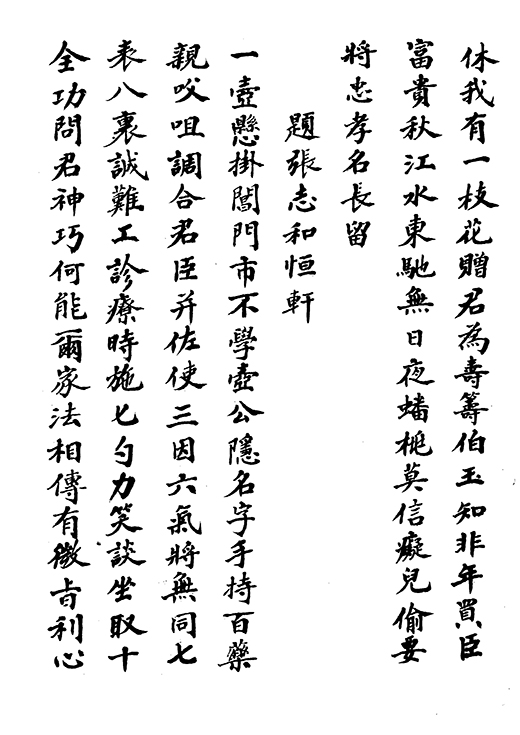 休我有一枝花贈君為壽籌伯玉知非年買臣
富貴秋江水東馳無日夜蟠桃莫信癡兒偷要
將忠孝名長留
題張志和恒軒
一壺懸掛閶門市不學壺公隱名字手持百藥
親㕮咀調合君臣并佐使三因六氣將無同七
表八裏誠難工診療時施七勺力笑談坐取十
全功問君神巧何能爾家法相傳有微旨利心